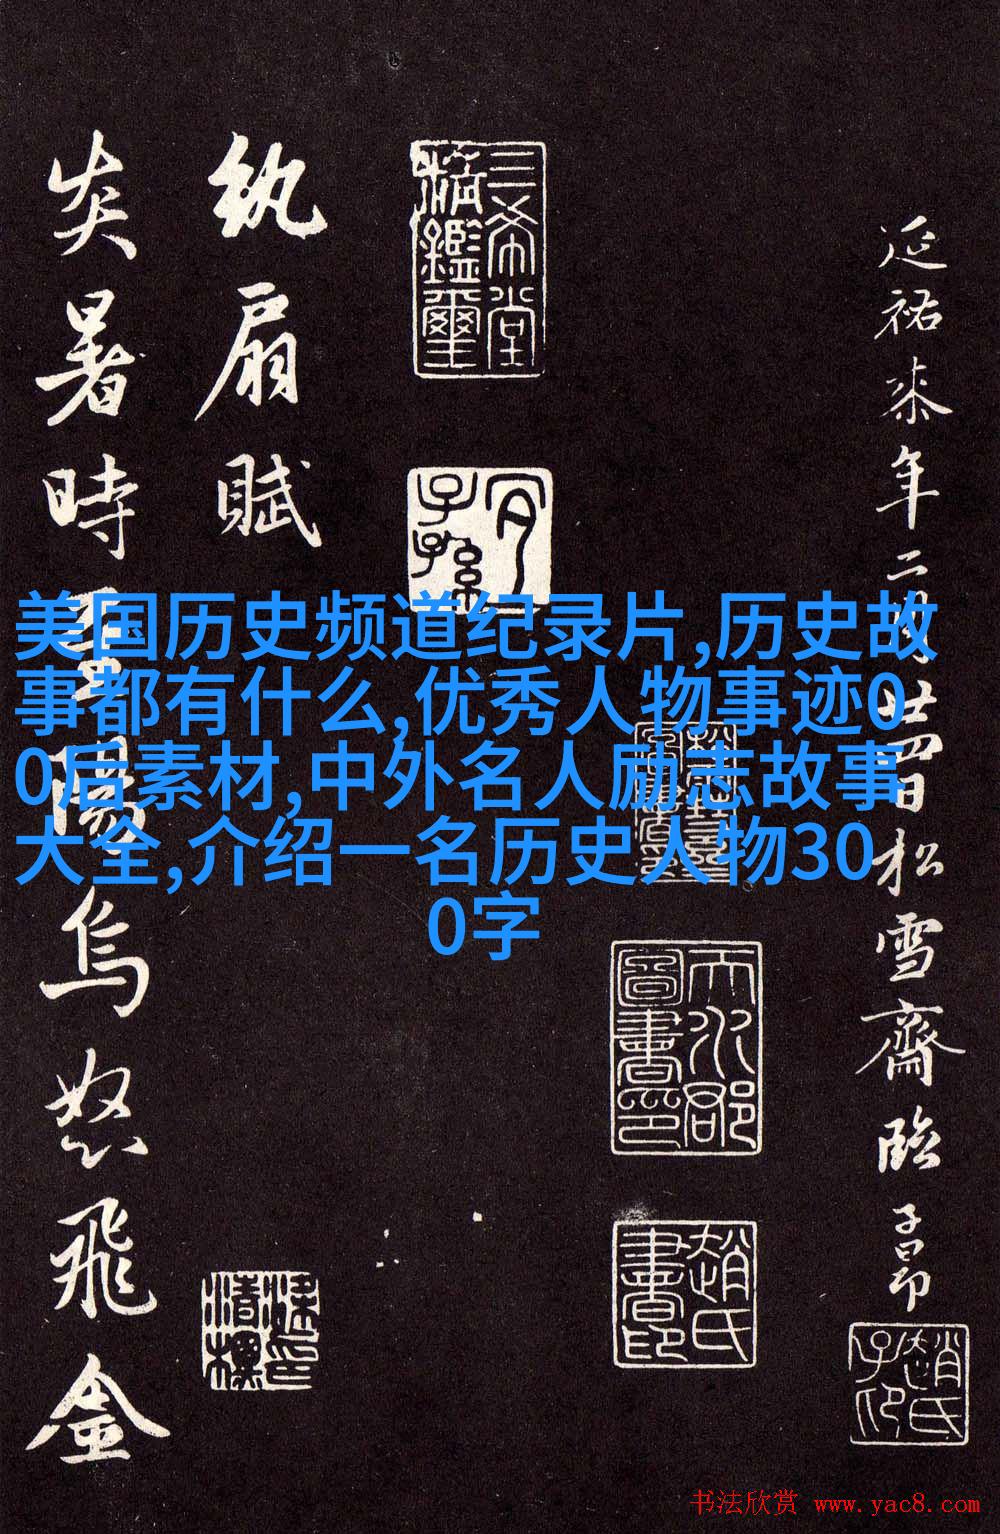 延祐柒年二月廿四日松雪齋臨子昂
趙氏子印
三希堂
精鑑璽
宜
子孫
天水郡
圖書印
趙氏
書印
紈扇賦
炎暑時
烏怒飛金
美国历史频道纪录片,历史故
事都有什么,优秀人物事迹0
0后素材,中外名人励志故事
大全,介绍一名历史人物30
0字
书法欣赏 www.yac8.com